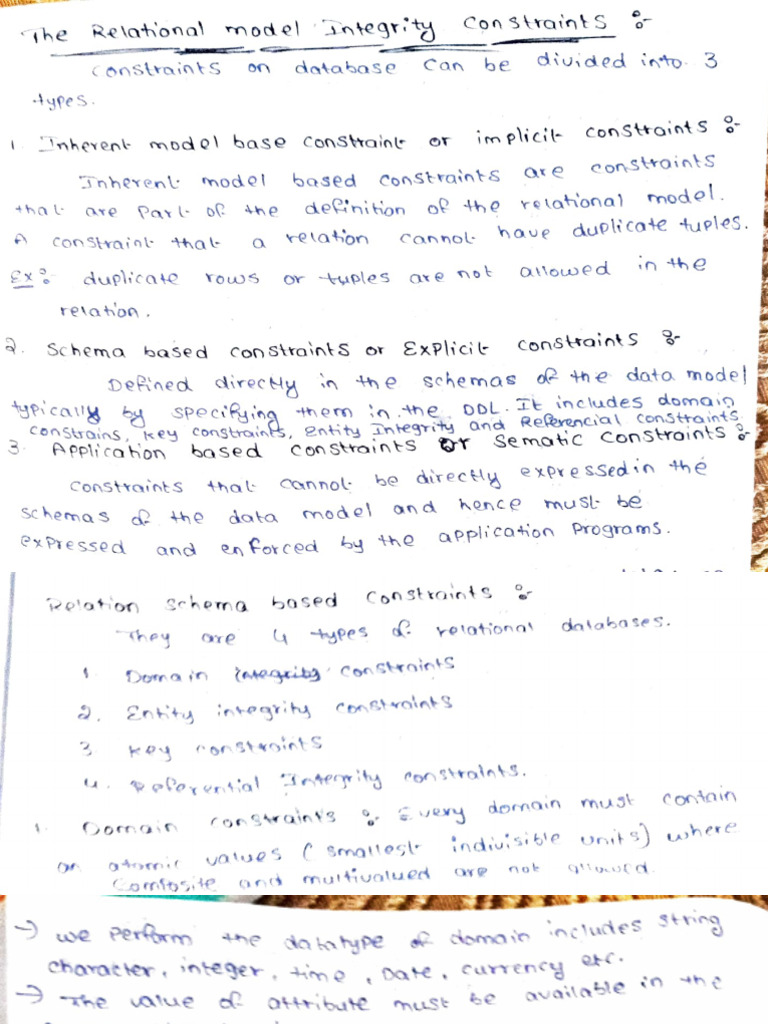 The Relational model Integrity Constraints :-
constraints on database can be divided into 3
types.
1. Inherent model base constraint or implicit constraints :-
Inherent model based constraints are constraints
that are part of the definition of the relational model.
A constraint that a relation cannot have duplicate tuples.
Ex :- duplicate rows or tuples are not allowed in the
relation.
2. Schema based constraints or Explicit constraints :-
Defined directly in the schemas of the data model
typically by specifying them in the DDL. It includes domain
constrains, key constraints, Entity Integrity and Referencial constraints.
3. Application based constraints or Sematic constraints :-
constraints that cannot be directly expressed in the
schemas of the data model and hence must be
expressed and enforced by the application programs.
Relation schema based constraints :-
They are 4 types of relational databases.
1. Domain constraints
2. Entity integrity constraints
3. key constraints
4. Referential Integrity constraints.
1. Domain constraints :- Every domain must contain
an atomic values (smallest indivisible units) where
composite and multivalued are not allowed.
→ we perform the datatype of domain includes string
character, integer, time, Date, currency etc.
→ The value of attribute must be available in the